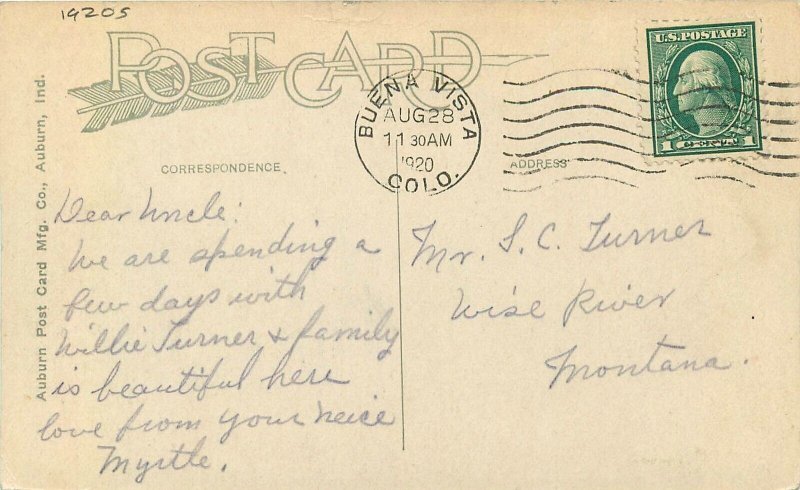 1920s
POST CARD
Auburn Post Card Mfg. Co., Auburn, Ind.
BUENA VISTA
AUG 28
11 30 AM
1920
COLO.
U.S. POSTAGE
1 CENT 1
CORRESPONDENCE
ADDRESS
Dear Uncle:
We are spending a
few days with
Willie Turner & family
is beautiful here
love from your neice
Myrtle.
Mr. S. C. Turner
Wise River
Montana.